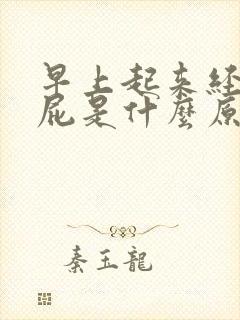 早上起来经
屁是什麼原
秦玉龍